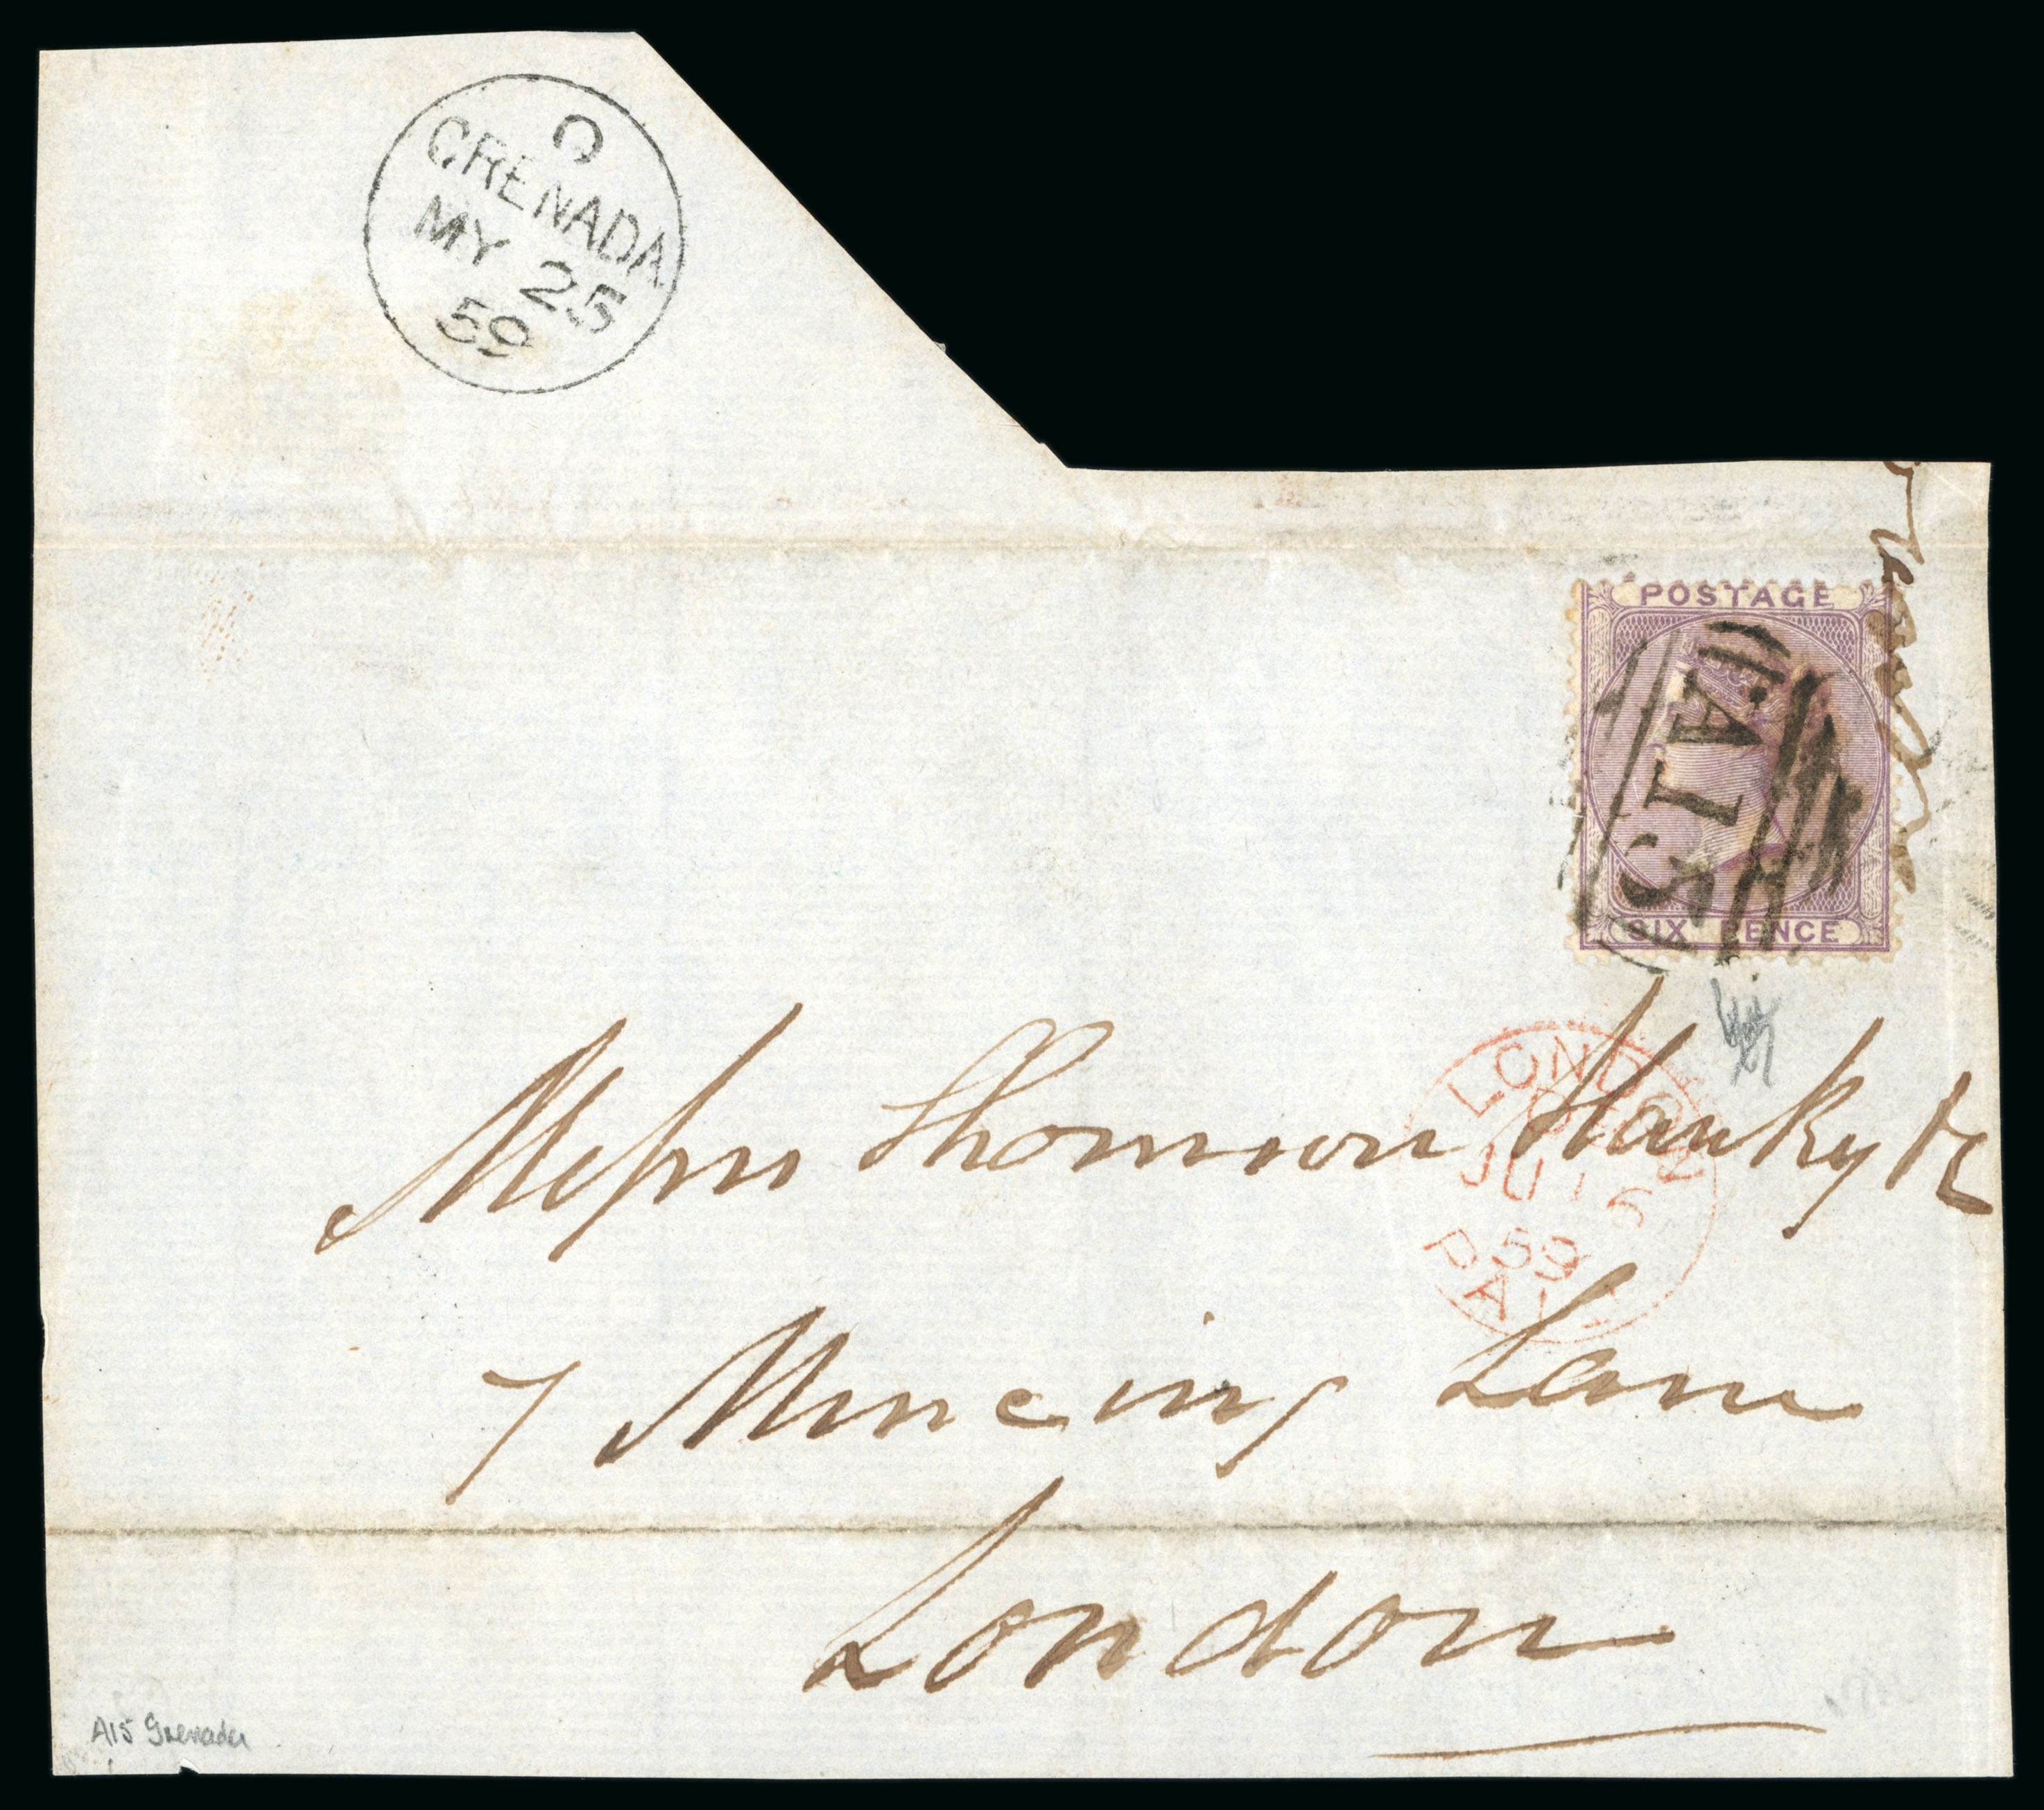 C
GRENADA
MY 25
59
POSTAGE
A15
SIX PENCE
LONDON
JU 16
59
PAID
Messrs Thomson Hankey & Co
7 Mincing Lane
London
A15 Grenada